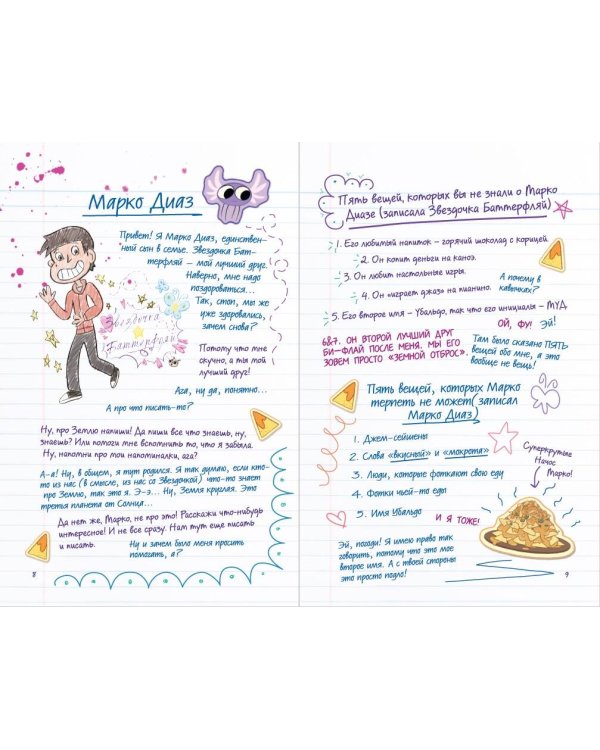 Марко Диаз
Привет! Я Марко Диаз, единствен-
ный сын в семье. Звездочка Бат-
терфляй – мой лучший друг.
Наверно, мне надо
поздороваться...
Так, стоп, мы же
уже здоровались,
зачем снова?
Звездочка
Баттерфляй
Потому что мне
скучно, а ты мой
лучший друг!
Ага, ну да, понятно...
А про что писать-то?
Ну, про Землю напиши! Да пиши все что знаешь, ну,
знаешь? Или помоги мне вспомнить то, что я забыла.
Ну, напомни про мои напоминалки, ага?
А-а! Ну, в общем, я тут родился. Я так думаю, если кто-
то из нас (в смысле, из нас со Звездочкой) что-то знает
про Землю, так это я. Э-э... Ну, Земля круглая. Это
третья планета от Солнца...
Да нет же, Марко, не про это! Расскажи что-нибудь
интересное! И не все сразу. Нам тут еще писать
и писать.
Ну и зачем было меня просить
помогать, а?
8
Пять вещей, которых вы не знали о Марко
Диазе (записала Звездочка Баттерфляй)
1. Его любимый напиток – горячий шоколад с корицей.
2. Он копит деньги на каноэ.
3. Он любит настольные игры.
4. Он «играет джаз» на пианино.
А почему в
кавычках?
5. Его второе имя – Убальдо, так что его инициалы – МУД.
ОЙ, ФУ!
Эй!
6&7. ОН ВТОРОЙ ЛУЧШИЙ ДРУГ
БИ-ФЛАЙ ПОСЛЕ МЕНЯ. МЫ ЕГО
ЗОВЕМ ПРОСТО «ЗЕМНОЙ ОТБРОС».
Там было сказано ПЯТЬ
вещей обо мне, а это
вообще не вещь!
Пять вещей, которых Марко
терпеть не может (записал
Марко Диаз)
1. Джем-сейшены
2. Слова «вкусней» и «мокрота»
3. Люди, которые фоткают свою еду
4. Фотки чьей-то еды
5. Имя Убальдо
И Я ТОЖЕ!
Суперкрутые
Начос
Марко!
Эй, погоди! Я имею право так
говорить, потому что это мое
второе имя. А с твоей стороны
это просто подло!
9